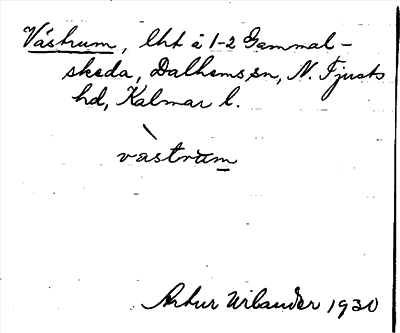 Västrum, lht å 1-2 Gammal-
skeda, Dalhems sn, N. Tjusts
hd, Kalmar l.
västrum
Artur Urbander 1930